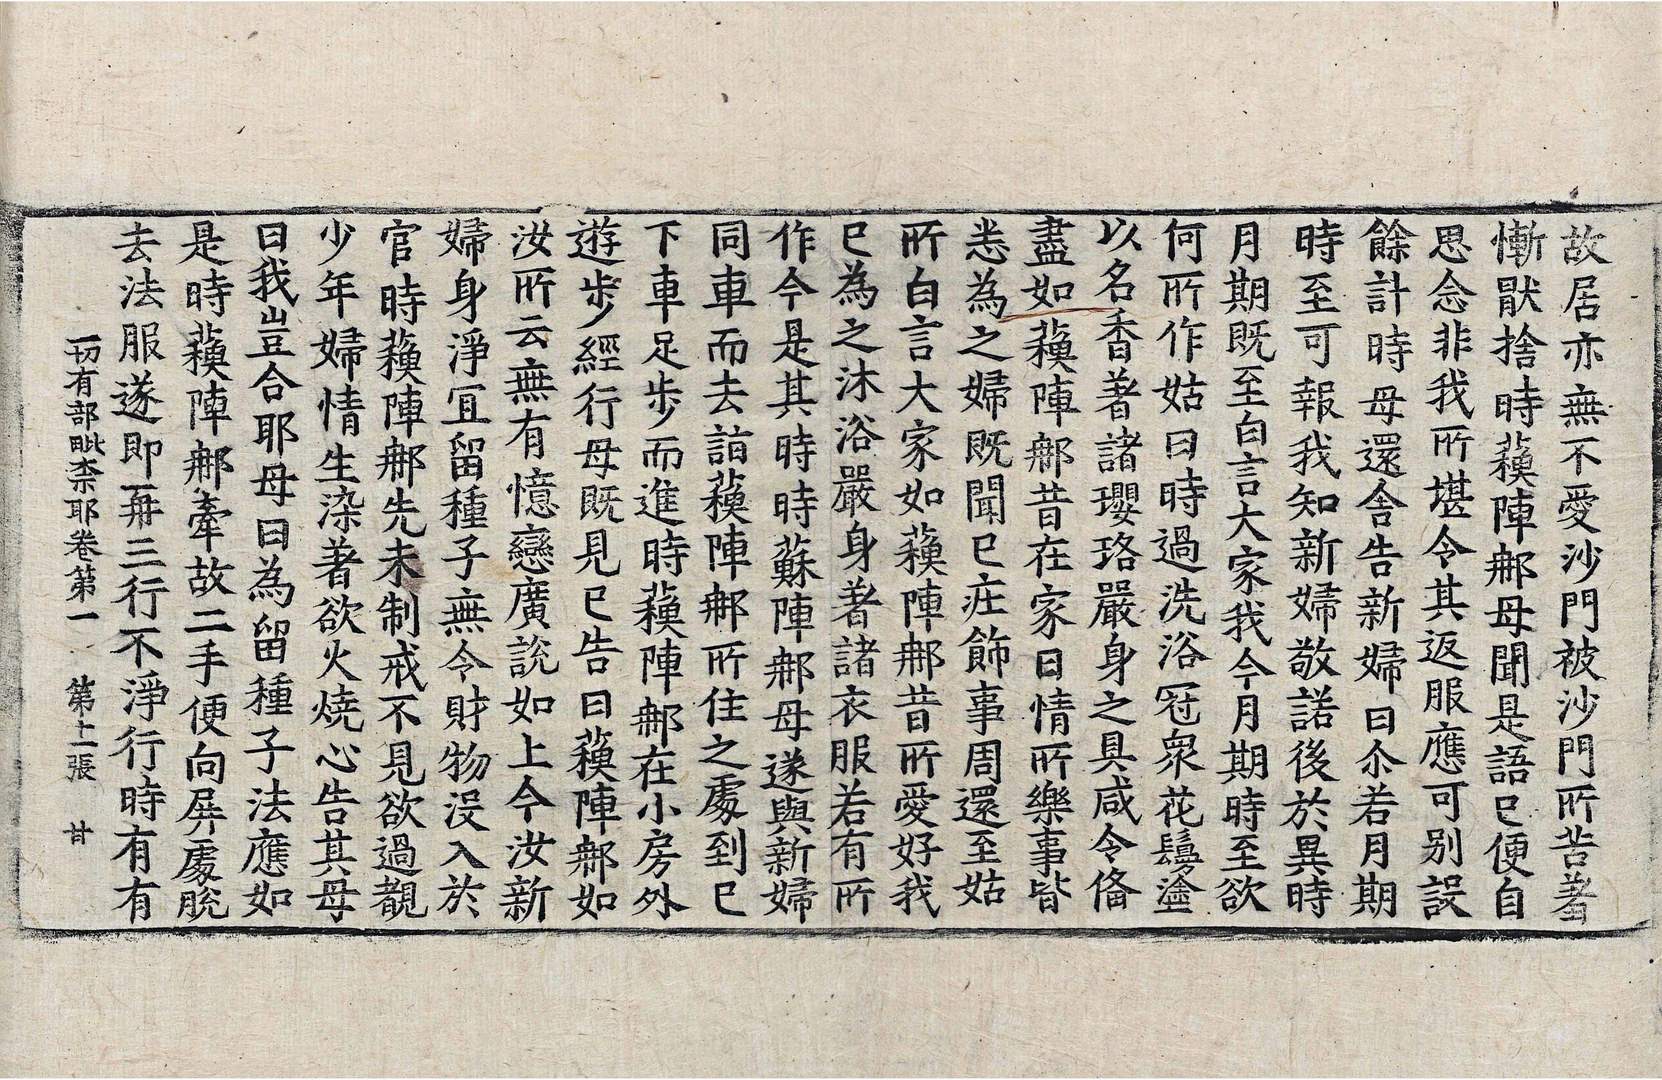 故居亦無不愛沙門被沙門所苦著
慚猒捨時蘇陣那母聞是語已便自
思念非我所堪令其返服應可別設
餘計時母還舍告新婦曰尒若月期
時至可報我知新婦敬諾後於異時
月期既至白言大家我今月期時至欲
何所作姑曰時過洗浴冠衆花鬘塗
以名香著諸瓔珞嚴身之具咸令俻
盡如蘇陣那昔在家日情所樂事皆
悉為之婦既聞已庄飾事周還至姑
所白言大家如蘇陣那昔所愛好我
已為之沐浴嚴身著諸衣服若有所
作今是其時時蘇陣那母遂與新婦
同車而去詣蘇陣那所住之處到已
下車足步而進時蘇陣那在小房外
遊步經行母既見已告曰蘇陣那如
汝所云無有憶戀廣說如上今汝新
婦身淨冝留種子無令財物没入於
官時蘇陣那先未制戒不見欲過覩
少年婦情生染著欲火燒心告其母
曰我豈合耶母曰為留種子法應如
是時蘇陣那牽故二手便向屏處脫
去法服遂即再三行不淨行時有有
一切有部毗柰耶卷第一　第十一張　甘